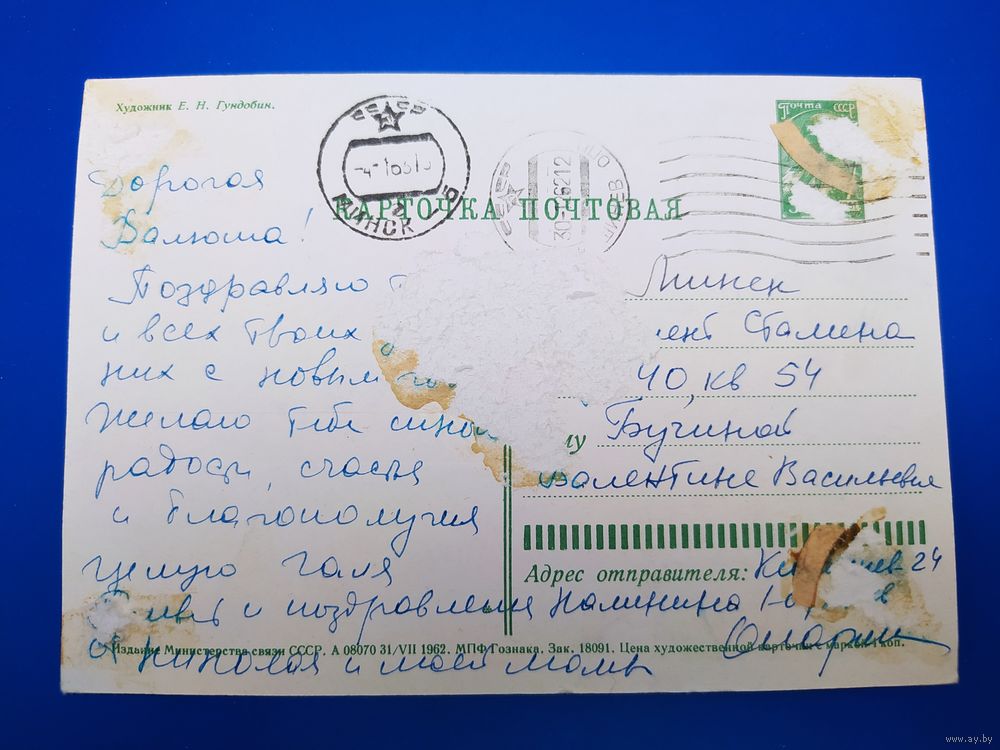 Художник Е. Н. Гундобин.
Почта СССР
СССР
МИНСК
КАРТОЧКА ПОЧТОВАЯ
Дорогая
Валюша!
Поздравляю
и всех твоих
них с новым
Желаю тебе
радости, счастья
и благополучия
целую Галя
и поздравления
Николая и моей мамы
Минск
Сталина
40, кв 54
Бучиной
Валентине Васильевне
Адрес отправителя:
24
Калинина
Издание Министерства связи СССР. А 08070 31/VII 1962. МПФ Гознака. Зак. 18091. Цена художественной карточки с маркой 4 коп.
www.ay.by